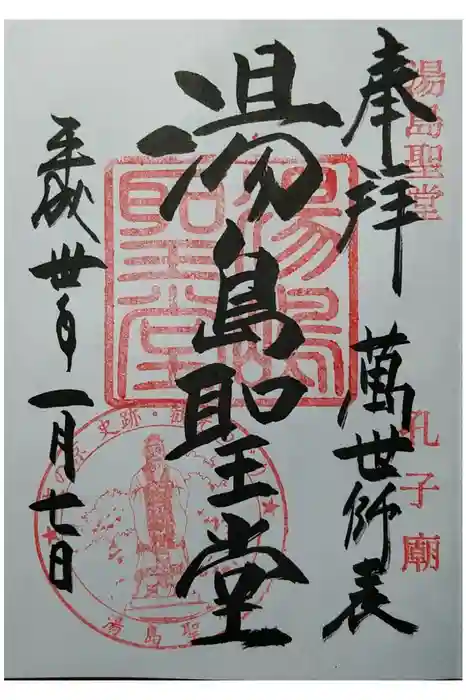 奉拝 萬世師表
湯島聖堂 孔子廟
湯島聖堂
湯島聖堂
平成卅年一月七日
史跡
湯島聖